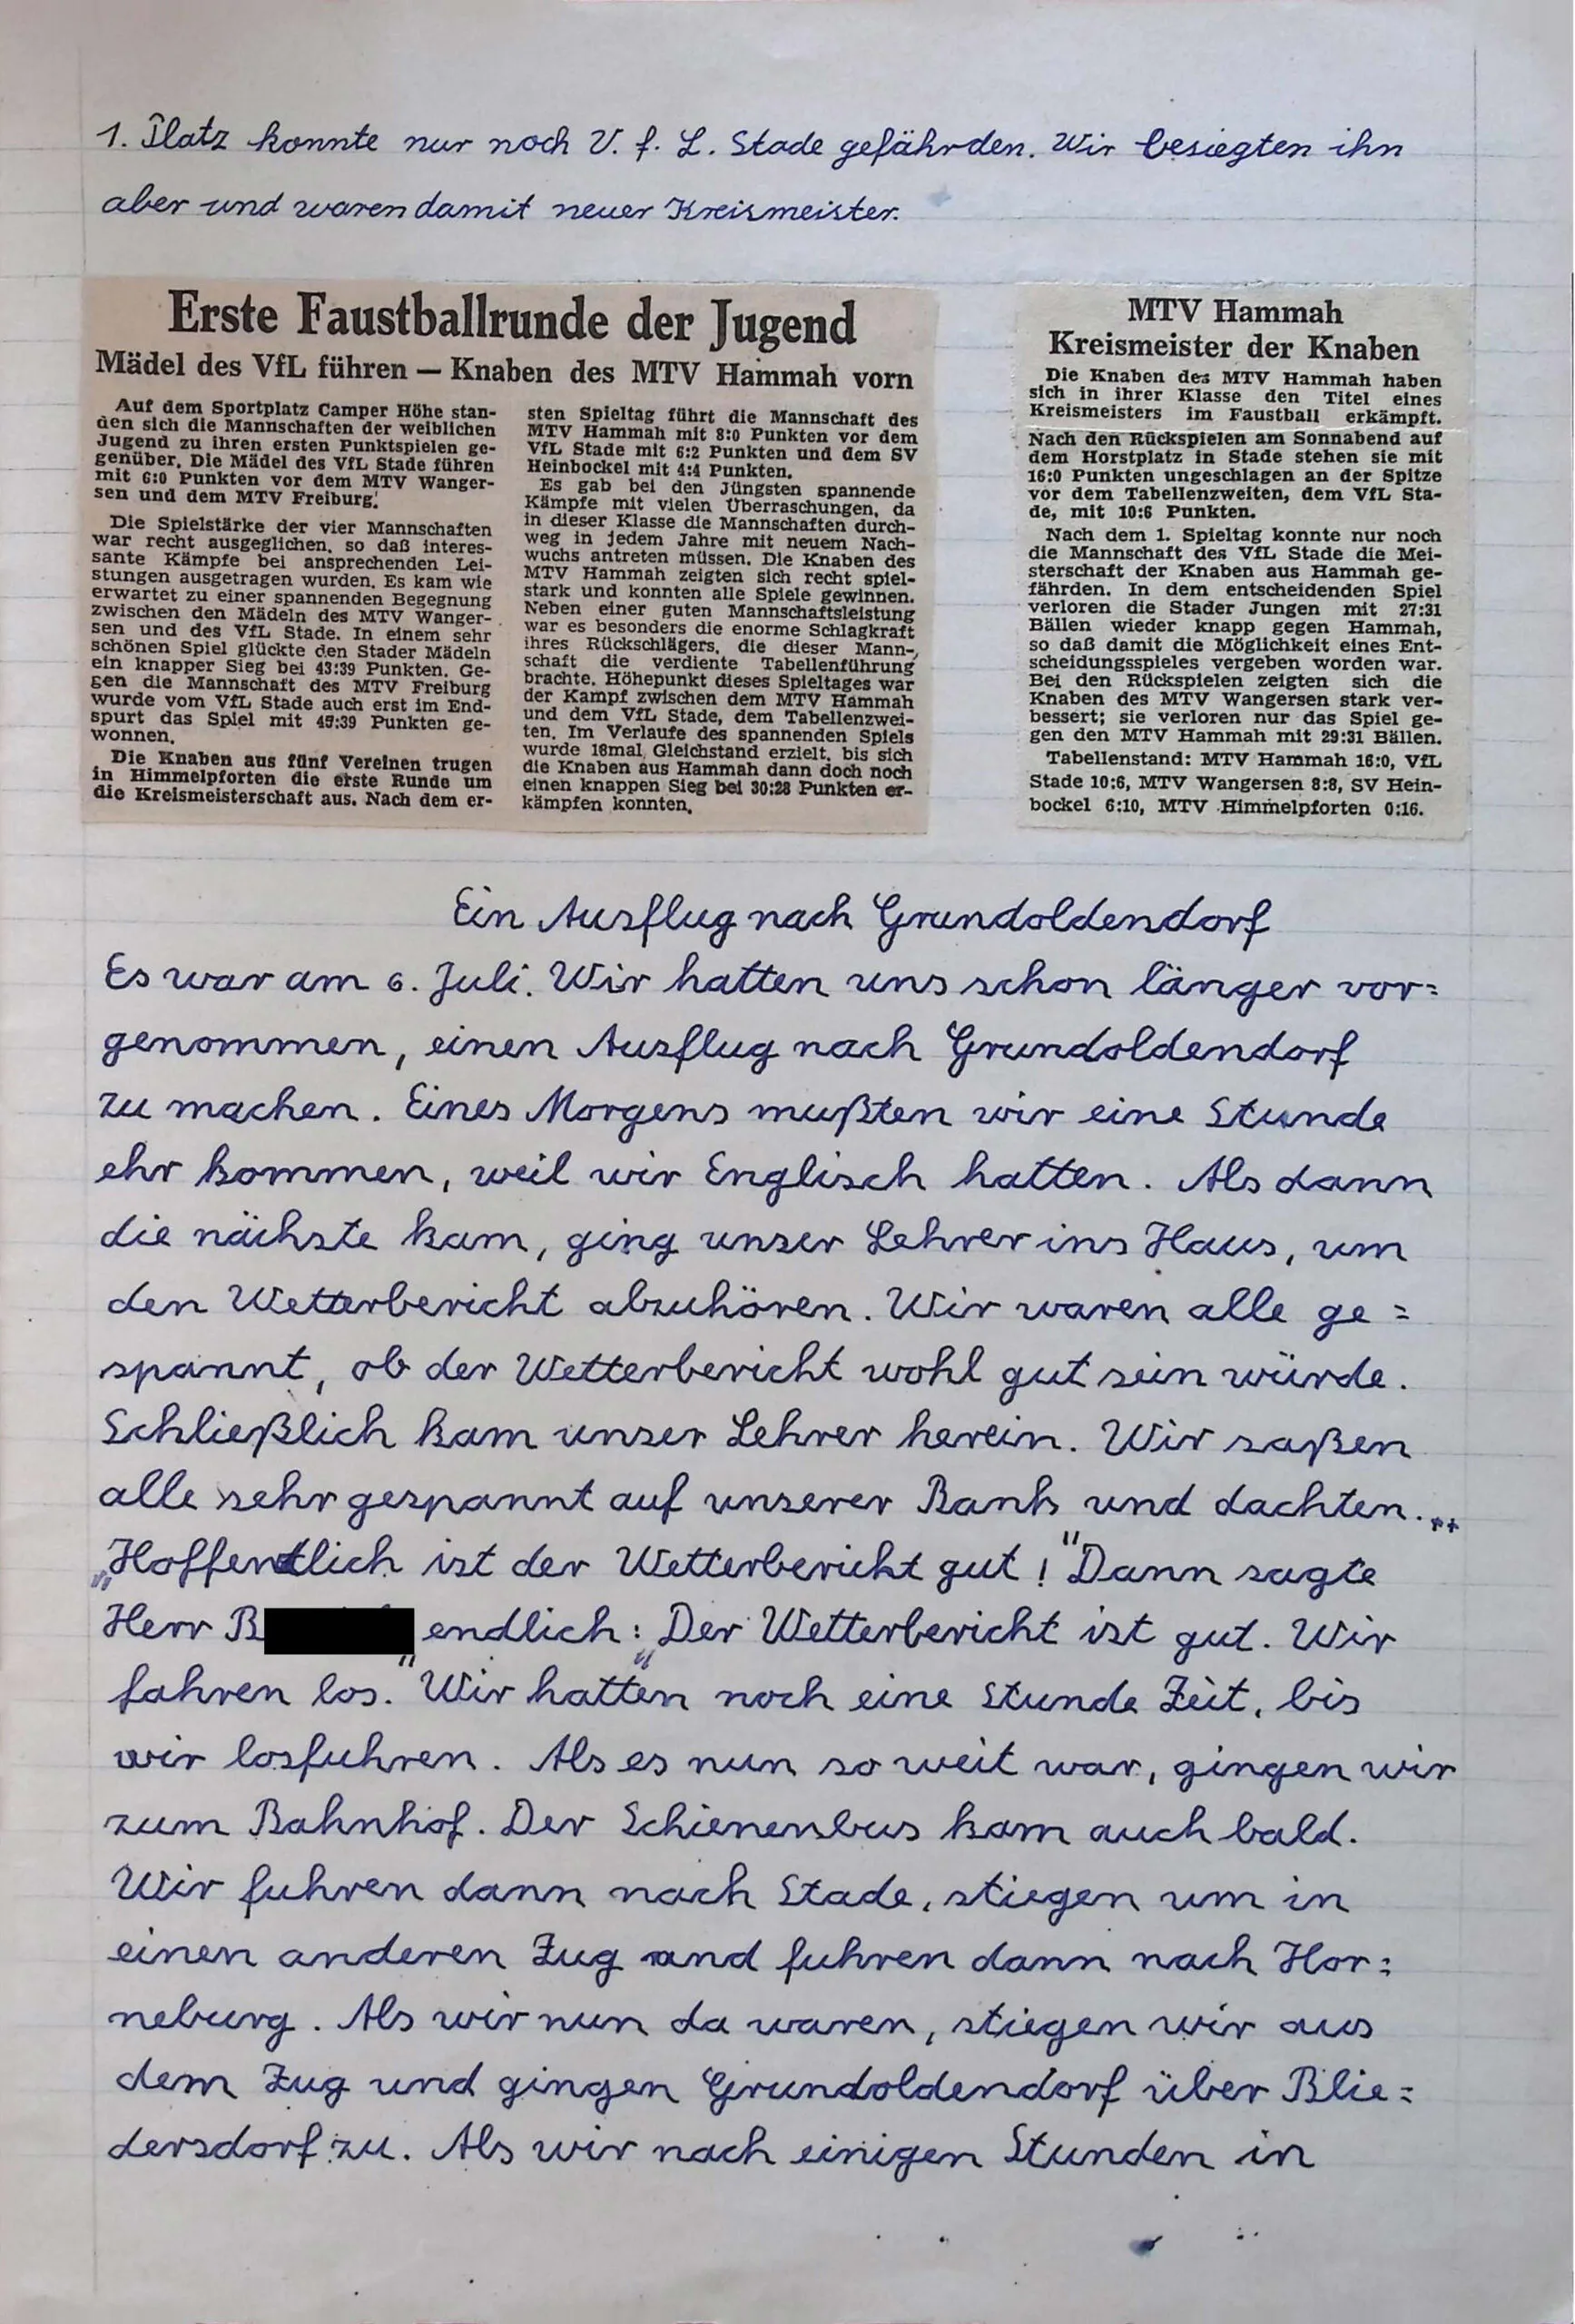 1. Platz konnte nur noch V. f. L. Stade gefährden. Wir besiegten ihn
aber und waren damit neuer Kreismeister.
Erste Faustballrunde der Jugend
Mädel des VfL führen — Knaben des MTV Hammah vorn
Auf dem Sportplatz Camper Höhe stan-
den sich die Mannschaften der weiblichen
Jugend zu ihren ersten Punktspielen ge-
genüber. Die Mädel des VfL Stade führen
mit 6:0 Punkten vor dem MTV Wanger-
sen und dem MTV Freiburg.
Die Spielstärke der vier Mannschaften
war recht ausgeglichen, so daß interes-
sante Kämpfe bei ansprechenden Lei-
stungen ausgetragen wurden. Es kam wie
erwartet zu einer spannenden Begegnung
zwischen den Mädeln des MTV Wanger-
sen und des VfL Stade. In einem sehr
schönen Spiel glückte den Stader Mädeln
ein knapper Sieg bei 43:39 Punkten. Ge-
gen die Mannschaft des MTV Freiburg
wurde vom VfL Stade auch erst im End-
spurt das Spiel mit 49:39 Punkten ge-
wonnen.
Die Knaben aus fünf Vereinen trugen
in Himmelpforten die erste Runde um
die Kreismeisterschaft aus. Nach dem er-
sten Spieltag führt die Mannschaft des
MTV Hammah mit 8:0 Punkten vor dem
VfL Stade mit 6:2 Punkten und dem SV
Heinbockel mit 4:4 Punkten.
Es gab bei den Jüngsten spannende
Kämpfe mit vielen Überraschungen, da
in dieser Klasse die Mannschaften durch-
weg in jedem Jahre mit neuem Nach-
wuchs antreten müssen. Die Knaben des
MTV Hammah zeigten sich recht spiel-
stark und konnten alle Spiele gewinnen.
Neben einer guten Mannschaftsleistung
war es besonders die enorme Schlagkraft
ihres Rückschlägers, die dieser Mann-
schaft die verdiente Tabellenführung
brachte. Höhepunkt dieses Spieltages war
der Kampf zwischen dem MTV Hammah
und dem VfL Stade, dem Tabellenzwei-
ten. Im Verlaufe des spannenden Spiels
wurde 18mal Gleichstand erzielt, bis sich
die Knaben aus Hammah dann doch noch
einen knappen Sieg bei 30:28 Punkten er-
kämpfen konnten.
MTV Hammah
Kreismeister der Knaben
Die Knaben des MTV Hammah haben
sich in ihrer Klasse den Titel eines
Kreismeisters im Faustball erkämpft.
Nach den Rückspielen am Sonnabend auf
dem Horstplatz in Stade stehen sie mit
16:0 Punkten ungeschlagen an der Spitze
vor dem Tabellenzweiten, dem VfL Sta-
de, mit 10:6 Punkten.
Nach dem 1. Spieltag konnte nur noch
die Mannschaft des VfL Stade die Mei-
sterschaft der Knaben aus Hammah ge-
fährden. In dem entscheidenden Spiel
verloren die Stader Jungen mit 27:31
Bällen wieder knapp gegen Hammah,
so daß damit die Möglichkeit eines Ent-
scheidungsspieles vergeben worden war.
Bei den Rückspielen zeigten sich die
Knaben des MTV Wangersen stark ver-
bessert; sie verloren nur das Spiel ge-
gen den MTV Hammah mit 29:31 Bällen.
Tabellenstand: MTV Hammah 16:0, VfL
Stade 10:6, MTV Wangersen 8:8, SV Hein-
bockel 6:10, MTV Himmelpforten 0:16.
Ein Ausflug nach Grundoldendorf
Es war am 6. Juli. Wir hatten uns schon länger vor=
genommen, einen Ausflug nach Grundoldendorf
zu machen. Eines Morgens mußten wir eine Stunde
ehr kommen, weil wir Englisch hatten. Als dann
die nächste kam, ging unser Lehrer ins Haus, um
den Wetterbericht abzuhören. Wir waren alle ge=
spannt, ob der Wetterbericht wohl gut sein würde.
Schließlich kam unser Lehrer herein. Wir saßen
alle sehr gespannt auf unserer Bank und dachten...
„Hoffentlich ist der Wetterbericht gut!" Dann sagte
Herr B endlich: „Der Wetterbericht ist gut. Wir
fahren los." Wir hatten noch eine Stunde Zeit, bis
wir losfuhren. Als es nun so weit war, gingen wir
zum Bahnhof. Der Schienenbus kam auch bald.
Wir fuhren dann nach Stade, stiegen um in
einen anderen Zug und fuhren dann nach Hor=
neburg. Als wir nun da waren, stiegen wir aus
dem Zug und gingen Grundoldendorf über Blie=
dersdorf zu. Als wir nach einigen Stunden in